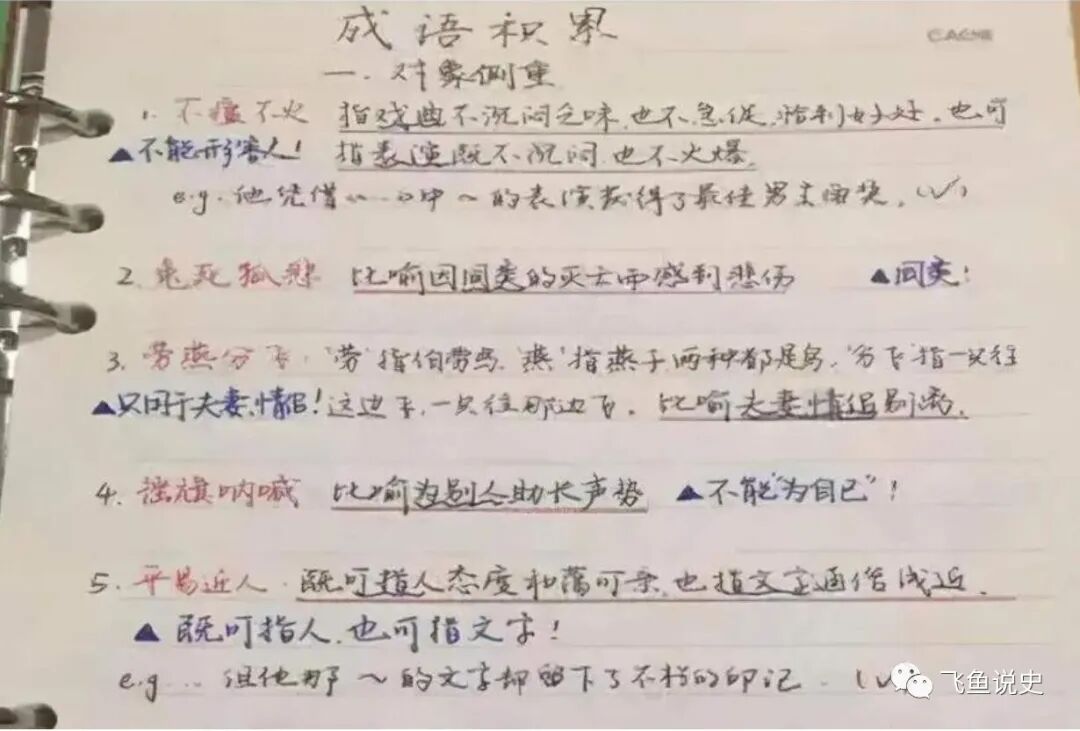 成语积累
一.对象侧重
1. 不瘟不火 指戏曲不沉闷乏味,也不急促,恰到好处。也可
▲不能形容人! 指表演既不沉闷,也不火爆.
e.g. 他凭借《……》中～的表演获得了最佳男主角奖。(√)
2. 兔死狐悲 比喻因同类的灭亡而感到悲伤 ▲同类!
3. 劳燕分飞:'劳'指伯劳鸟,'燕'指燕子,两种都是鸟,'分飞'指一只往
▲只用于夫妻、情侣!这边飞,一只往那边飞。比喻夫妻情侣别离.
4. 摇旗呐喊 比喻为别人助长声势 ▲不能"为自己"!
5. 平易近人.既可指人态度和蔼可亲,也指文字通俗浅近.
▲既可指人,也可指文字!
e.g... 但他那～的文字却留下了不朽的印记.(√)
飞鱼说史